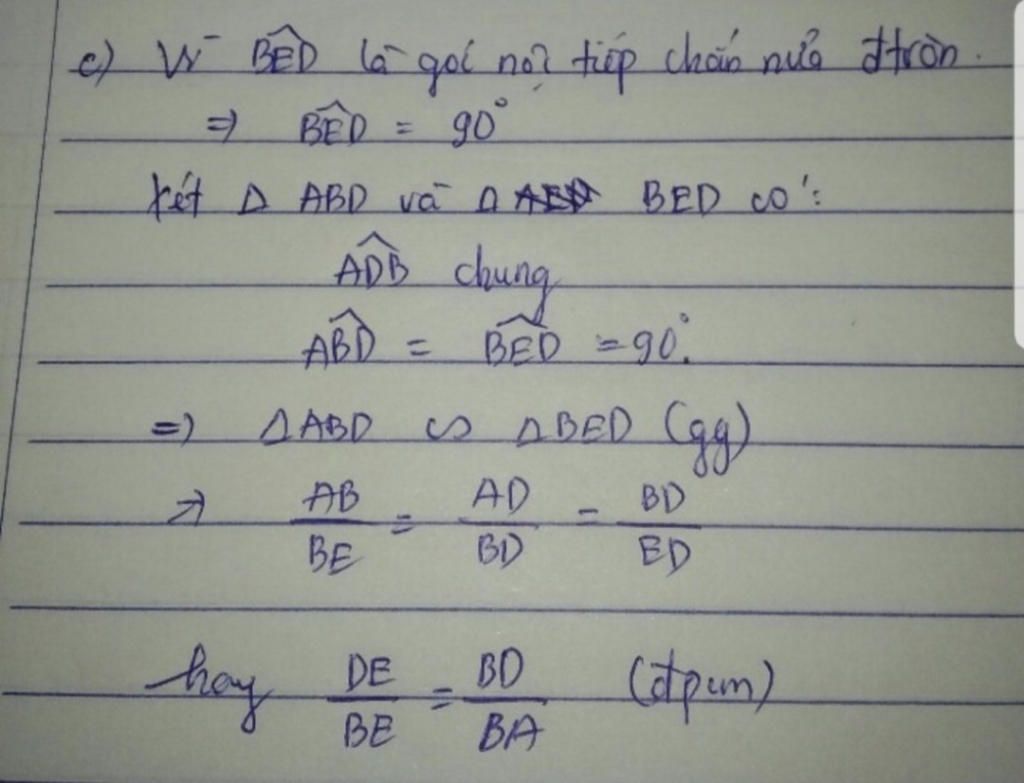 c) Vì BÊD là góc nội tiếp chắn nửa đtròn.
=> BÊD = 90°
Xét Δ ABD và Δ BED có:
ADB chung
ABD = BED = 90°.
=> ΔABD ∽ ΔBED (gg)
=> AB/BE = AD/BD = BD/ED
hay DE/BE = BD/BA (đpcm)